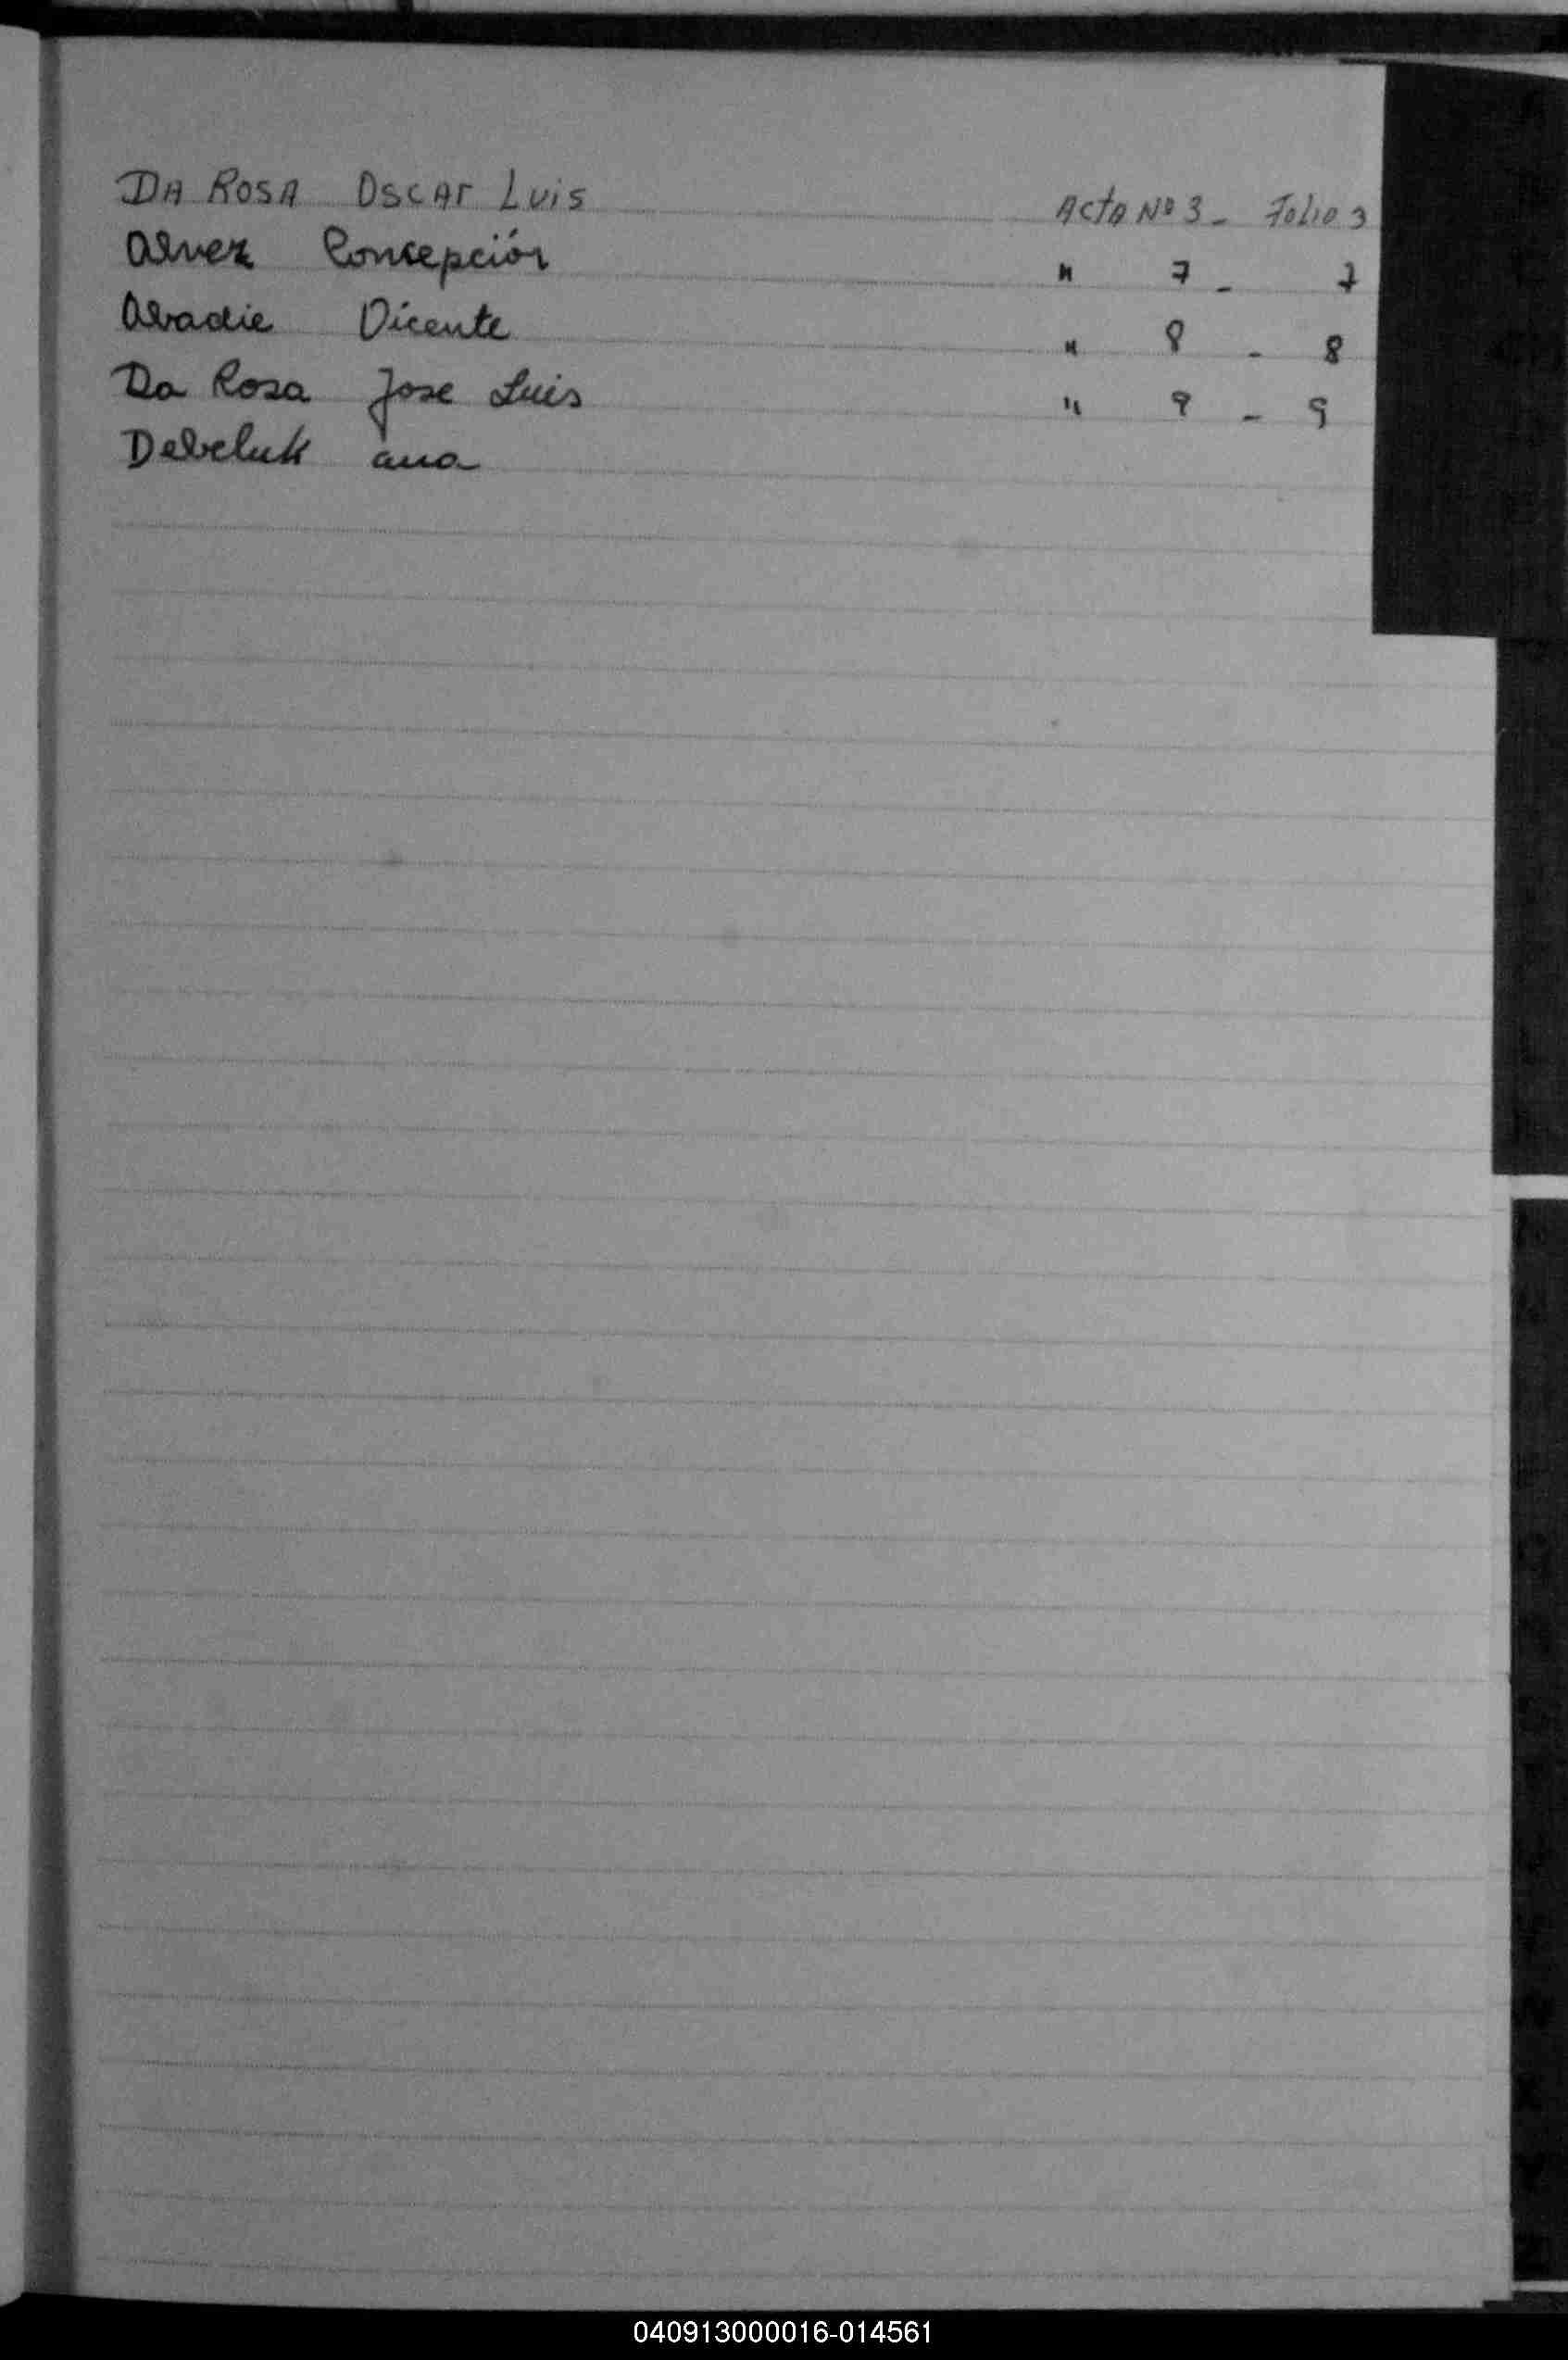 DA ROSA OSCAR LUIS ACTA Nº 3 - Folio 3
Alvez Concepción " 7 - 7
Abadie Vicente " 8 - 8
Da Rosa Jose Luis " 9 - 9
Debeluk Ana
040913000016-014561